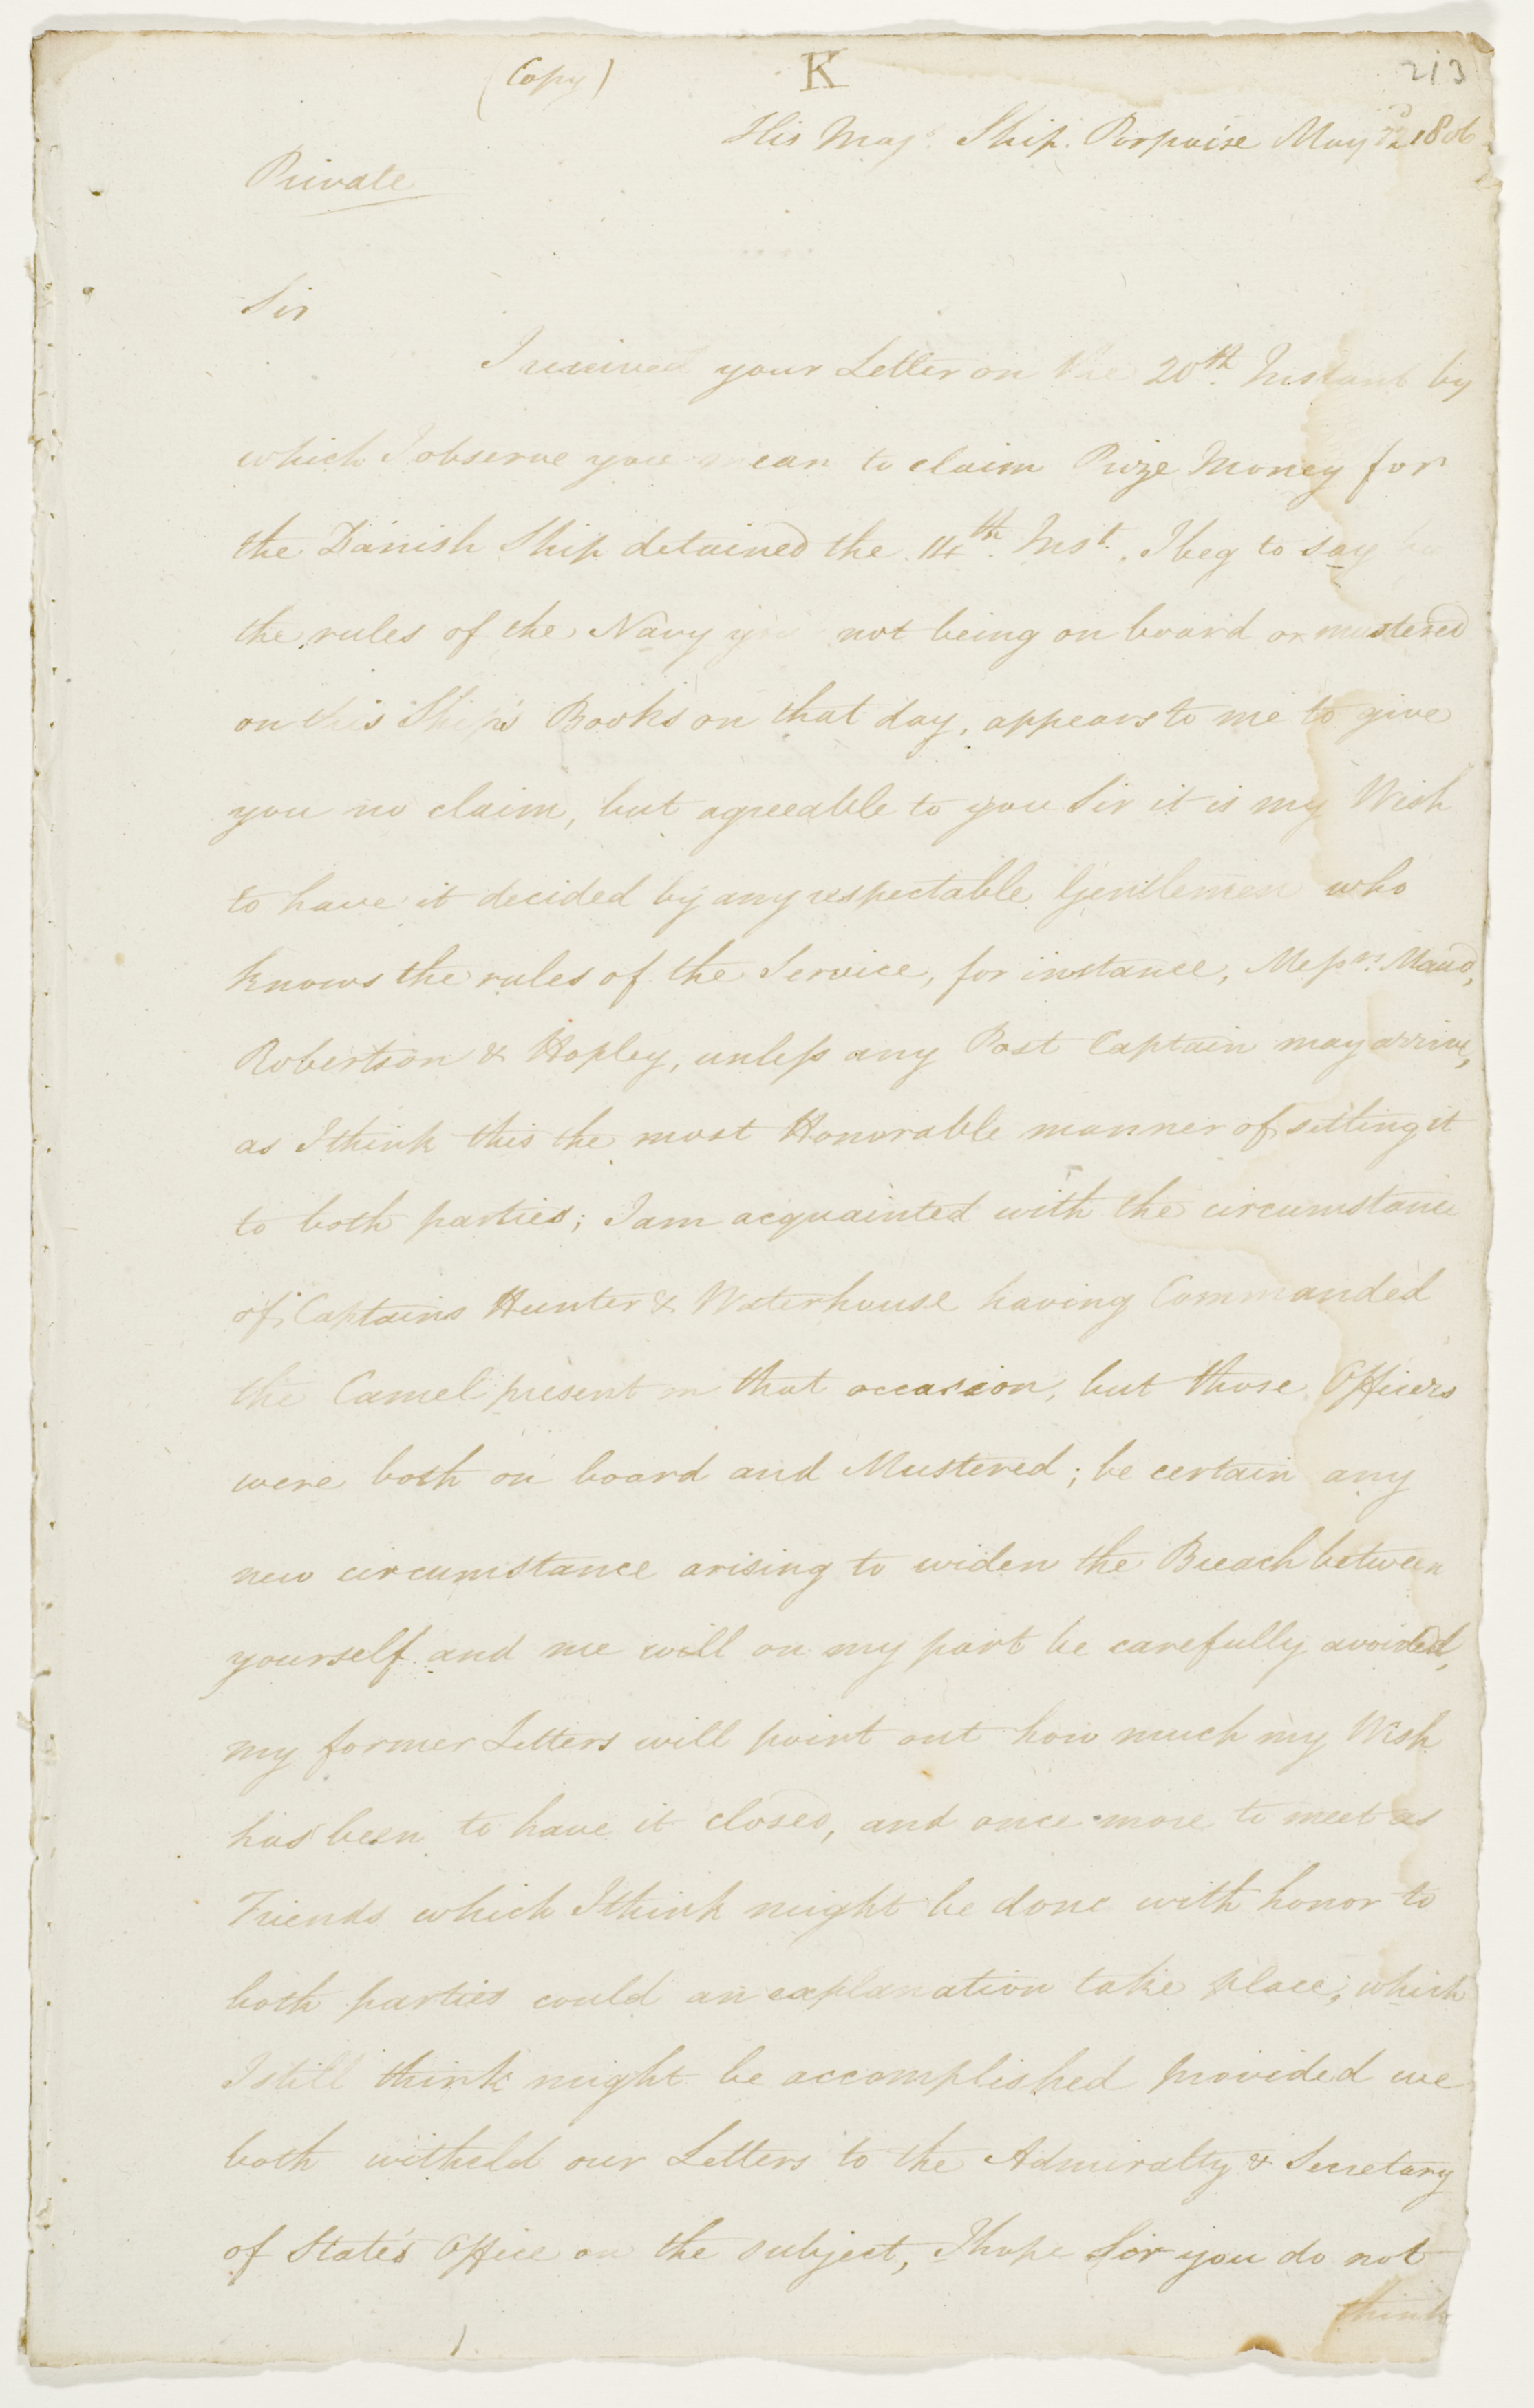 (Copy)
K
213
His Majs. Ship. Porpoise May 22d 1806
Private
Sir
I received your Letter on the 20th. Instant by
which I observe you mean to claim Prize Money for
the Danish Ship detained the 14th. Inst. I beg to say
the rules of the Navy you not being on board or mustered
on this Ship's Books on that day, appears to me to give
you no claim, but agreeable to you Sir it is my Wish
to have it decided by any respectable Gentlemen who
knows the rules of the Service, for instance, Messrs. Maud,
Robertson & Hopley, unless any Post Captain may arrive,
as I think this the most Honorable manner of setling it
to both parties; I am acquainted with the circumstance
of Captains Hunter & Waterhouse having Commanded
the Camel present on that occasion, but those Officers
were both on board and Mustered; be certain any
new circumstance arising to widen the Breach between
yourself and me will on my part be carefully avoided,
my former Letters will point out how much my Wish
has been to have it closed, and once more to meet as
Friends which I think might be done with honor to
both parties could an explanation take place; which
I still think might be accomplished provided we
both witheld our Letters to the Admiralty & Secretary
of State's Office on the subject, I hope Sir you do not
think